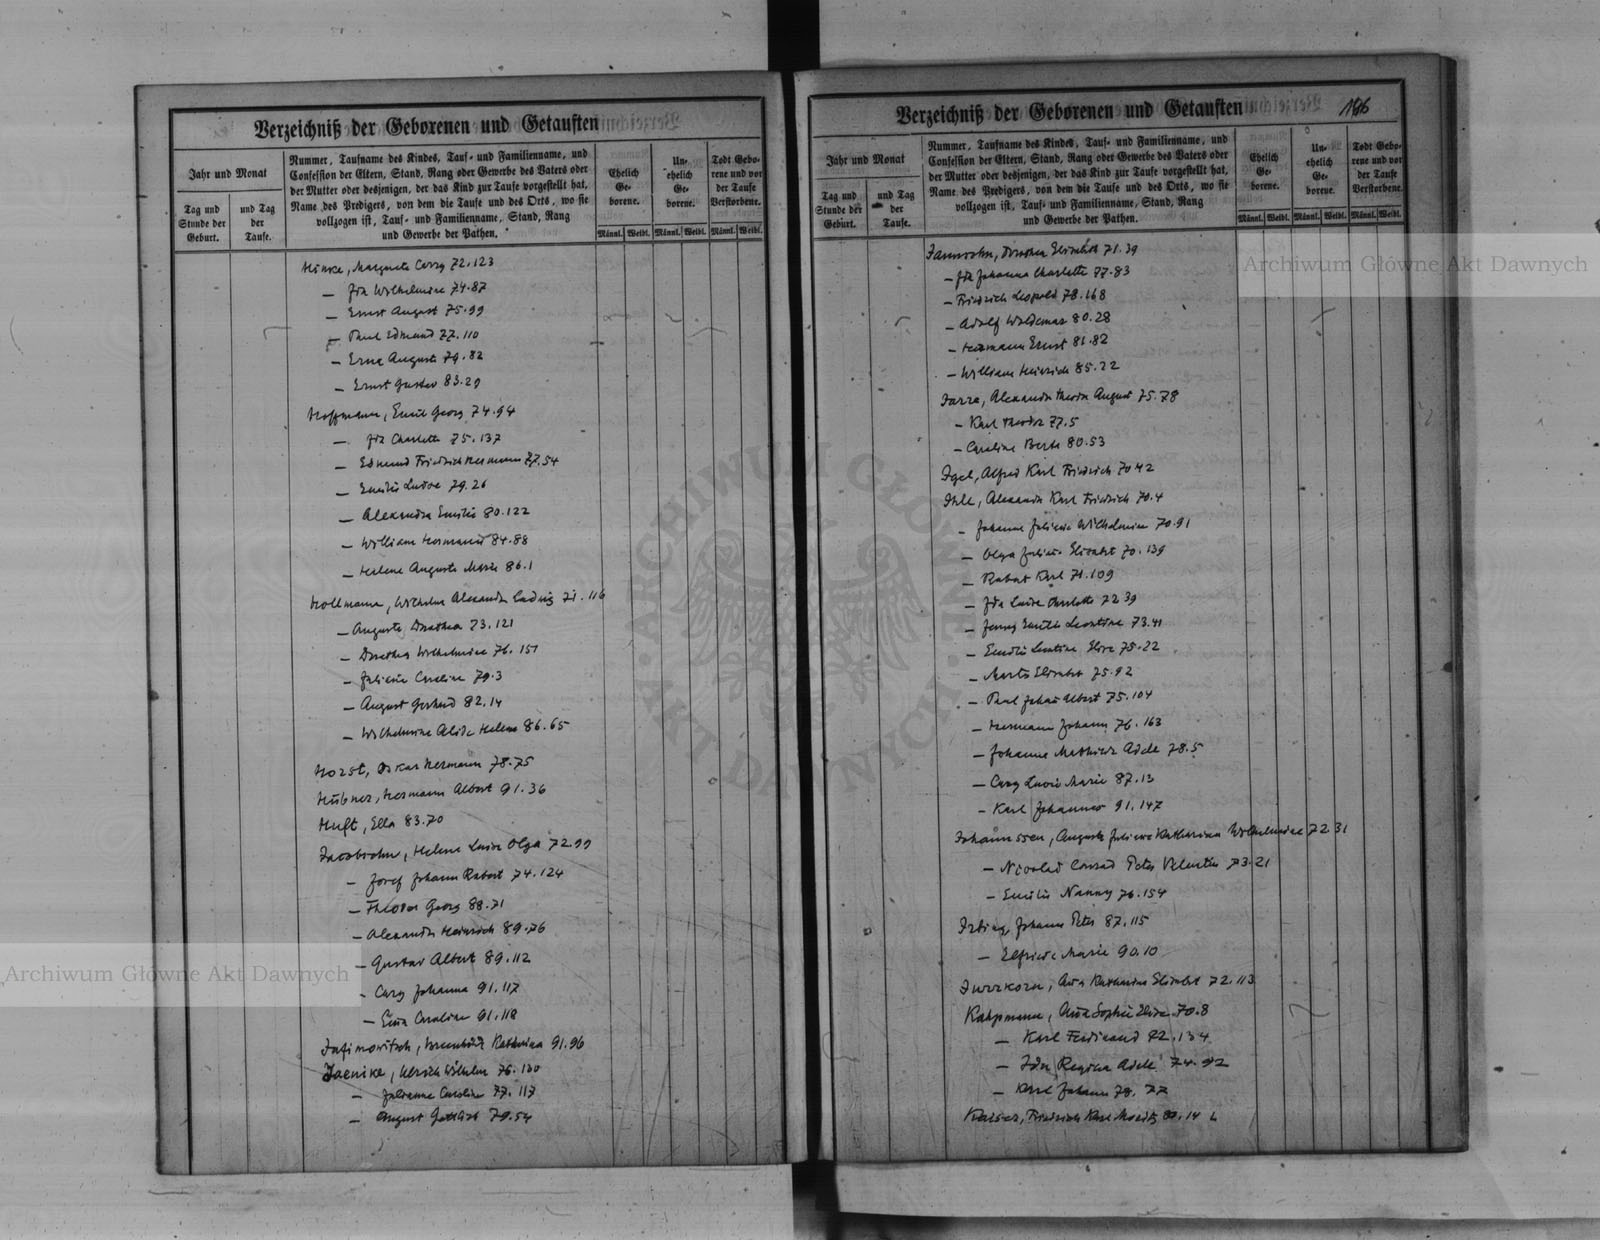 Verzeichniß der Geborenen und Getauften
Jahr und Monat
Tag und
Stunde der
Geburt.
und Tag
der
Taufe.
Nummer, Taufname des Kindes, Tauf- und Familienname, und
Confession der Eltern, Stand, Rang oder Gewerbe des Vaters oder
der Mutter oder desjenigen, der das Kind zur Taufe vorgestellt hat,
Name des Predigers, von dem die Taufe und des Orts, wo sie
vollzogen ist, Tauf- und Familienname, Stand, Rang
und Gewerbe der Pathen.
Ehelich
Ge-
borene.
Un-
ehelich
Ge-
borene.
Todt Gebo-
rene und vor
der Taufe
Verstorbene.
Männl. Weibl. Männl. Weibl. Männl. Weibl.
Hinke, Margarete Conny 72.123
— Ida Wilhelmine 74.87
— Ernst August 75.99
— Paul Edmund 77.110
— Erna Auguste 79.82
— Ernst Gustav 83.29
Hoffmann, Emil Georg 74.94
— Ida Charlotte 75.137
— Edmund Friedrich Hermann 77.54
— Emilie Luise 79.26
— Alexandra Emilie 80.122
— William Hermann 84.88
— Helene Auguste Marie 86.1
Hollmann, Wilhelm Alexander Ludwig 71.116
— Auguste Dorothea 73.121
— Dorothea Wilhelmine 76.151
— Juliane Caroline 79.3
— August Gerhard 82.14
— Wilhelmine Alide Helene 86.65
Horst, Oskar Hermann 78.75
Hübner, Hermann Albert 91.36
Huft, Ella 83.70
Jacobsohn, Helene Luise Olga 72.99
— Josef Johann Robert 74.124
— Theodor Georg 88.71
— Alexander Heinrich 89.76
— Gustav Albert 89.112
— Cary Johanna 91.117
— Emma Caroline 91.118
Jafimowitsch, Katharina 91.96
Jaenike, Ulrich Wilhelm 76.130
— Julianne Caroline 77.117
— August Gottlieb 79.54
Verzeichniß der Geborenen und Getauften
196
Jahr und Monat
Tag und
Stunde der
Geburt.
und Tag
der
Taufe.
Nummer, Taufname des Kindes, Tauf- und Familienname, und
Confession der Eltern, Stand, Rang oder Gewerbe des Vaters oder
der Mutter oder desjenigen, der das Kind zur Taufe vorgestellt hat,
Name des Predigers, von dem die Taufe und des Orts, wo sie
vollzogen ist, Tauf- und Familienname, Stand, Rang
und Gewerbe der Pathen.
Ehelich
Ge-
borene.
Un-
ehelich
Ge-
borene.
Todt Gebo-
rene und vor
der Taufe
Verstorbene.
Männl. Weibl. Männl. Weibl. Männl. Weibl.
Jannsohn, Dorothea Elisabeth 71.39
— Ida Johanna Charlotte 77.83
— Friedrich Leopold 78.168
— Adolf Woldemar 80.28
— Hermann Ernst 81.82
— William Heinrich 85.22
Jarre, Alexander Theodor August 75.78
— Karl Theodor 77.5
— Caroline Berta 80.53
Igel, Alfred Karl Friedrich 70.42
Ihle, Alexander Karl Friedrich 70.4
— Johanna Juliane Wilhelmine 70.91
— Olga Juliane Elisabet 70.139
— Robert Karl 71.109
— Ida Luise Charlotte 72.39
— Jenny Emilie Leontine 73.41
— Emilie Leontine Elise 75.22
— Marta Elisabet 75.92
— Paul Johann Albert 75.104
— Hermann Johann 76.163
— Johanna Mathilde Adele 78.5
— Cary Lucie Marie 87.13
— Karl Johannes 91.147
Johannssen, Auguste Juliane Katharina Wilhelmine 72.31
— Nicolai Conrad Peter Valentin 73.21
— Emilie Nanny 76.154
Irbing, Johann Peter 87.115
— Elfriede Marie 90.10
Jurrkorn, Anna Katharina Elisabet 72.113
Kahpmann, Anna Sophie Elise 70.8
— Karl Ferdinand 72.134
— Ida Regina Adele 74.92
— Karl Johann 78.77
Kaiser, Friedrich Karl Moritz 80.14
Archiwum Główne Akt Dawnych
Archiwum Główne Akt Dawnych
ARCHIWUM GŁÓWNE AKT DAWNYCH